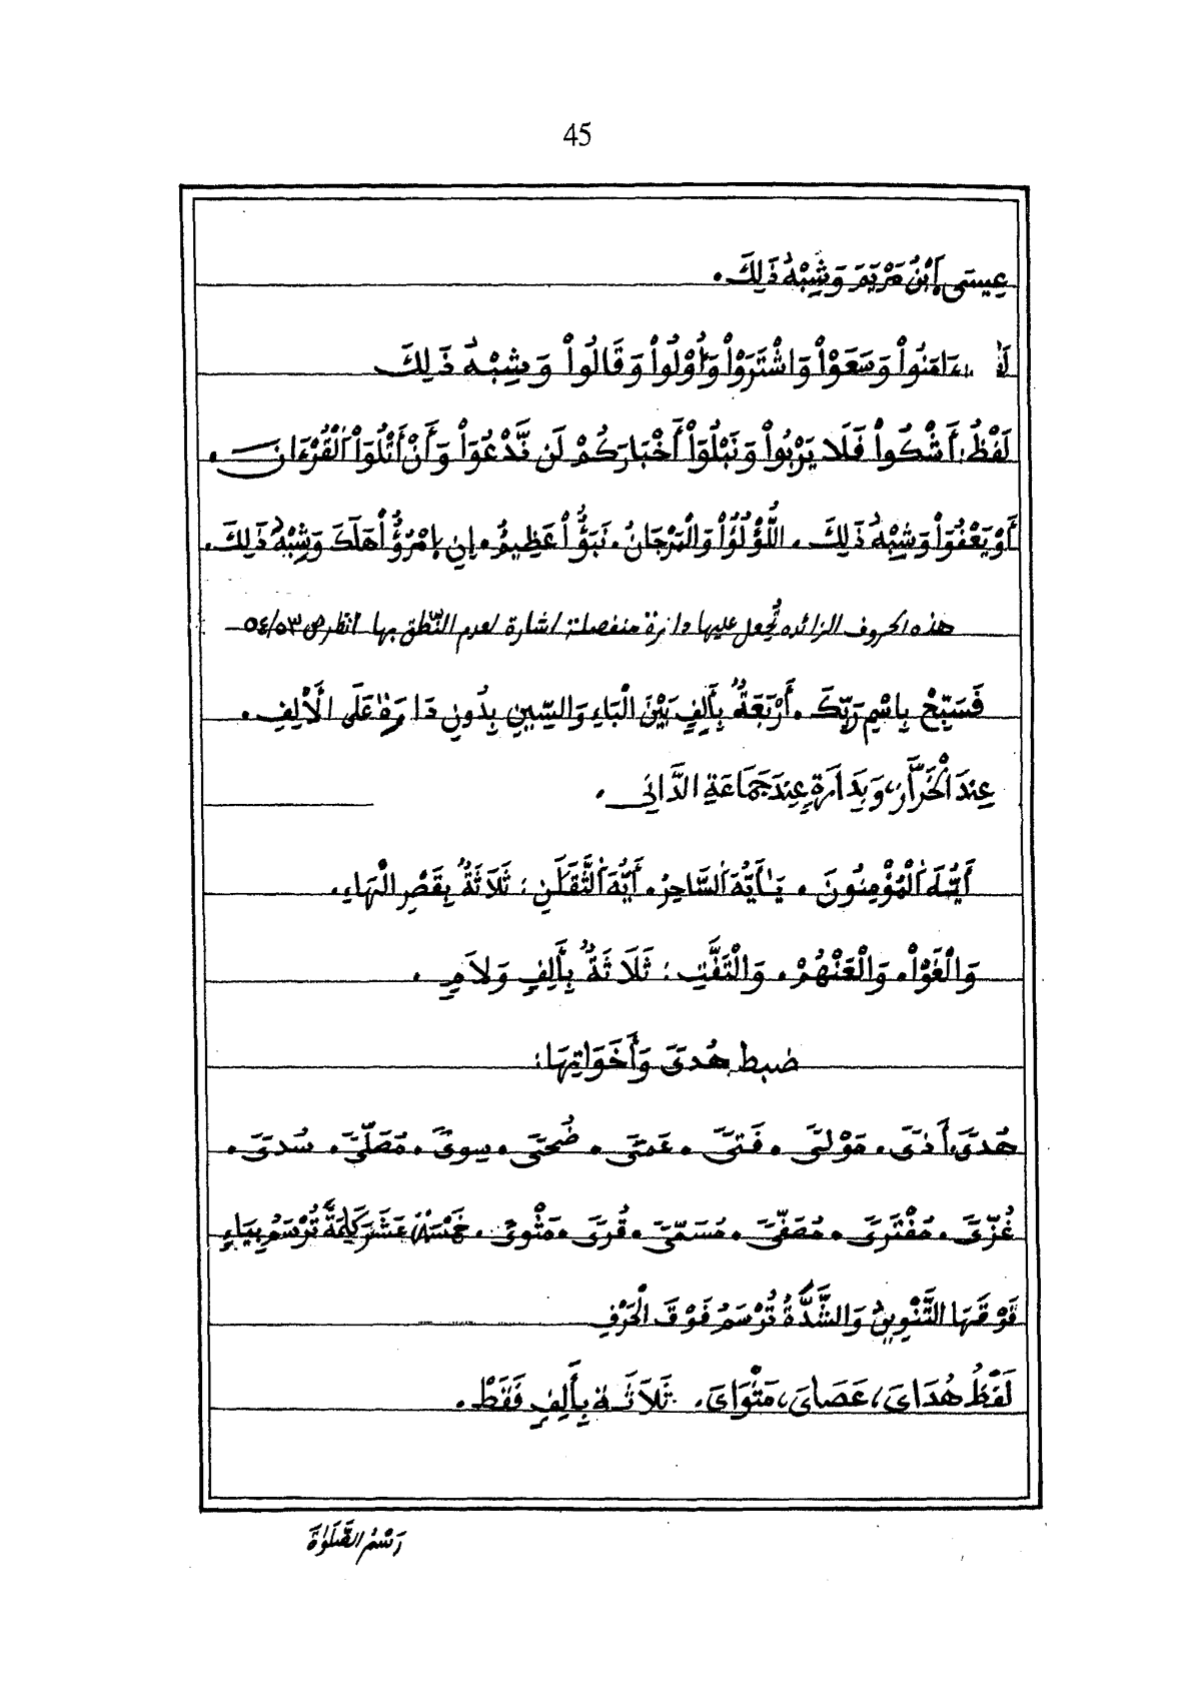 45
عِيسَى اَبْنُ مَرْيَمَ وَشِبْهُ ذَلِكَ.
ءَامَنُواْ وَسَعَوْاْ وَاشْتَرَوُاْ وَأُوْلُواْ وَقَالُواْ وَشِبْهُ ذَلِكَ
لَفْظُ: أَشْكُواْ فَلَا يَرْبُواْ وَنَبْلُوَاْ أَخْبَارَكُمْ لَن نَّدْعُوَاْ وَأَنْ أَتْلُوَاْ اَلْقُرْءَانَ.
أَوْ يَعْفُوَاْ وَشِبْهُ ذَلِكَ. اللُّؤْلُؤُاْ وَالْمَرْجَانُ. نَبَؤُاْ عَظِيمٌ. إِنِ امْرُؤٌاْ هَلَكَ وَشِبْهُ ذَلِكَ.
هذه الحروف الزائده تُجعل عليها دائرة منفصلة اشارة لعدم النّطق بها انظر ص ٥٤/٥٣
فَسَبِّحْ بِاسْمِ رَبِّكَ. أَرْبَعَةٌ بِأَلِفٍ بَيْنَ الْبَاءِ وَالسِّينِ بِدُونِ دَارَةٍ عَلَى الْأَلِفِ.
عِندَ الْخَرَّازِ، وَبِدَارَةٍ عِندَ جَمَاعَةِ الدَّانِي.
أَيُّهَ اَلْمُؤْمِنُونَ. يَٰأَيُّهَ اَلسَّاحِرُ. أَيُّهَ اَلثَّقَلَٰنِ: ثَلَاثَةٌ بِقَصْرِ الْهَاءِ.
وَالْغَوْاْ. وَالْعَنْهُمْ. وَالْتَفَّتِ: ثَلَاثَةٌ بِأَلِفٍ وَلَامٍ.
ضبط هُدىً وَأَخَوَاتِهَا:
هُدىً، أَذىً، مَوْلىً. فَتىً. عَمىً. ضُحىً. سِوىً. مُصَلّىً. سُدىً.
غُزّىً. مُفْتَرىً. مُصَفّىً. مُسَمّىً. قُرىً. مَثْوىً. خَمْسَةَ عَشَرَ كَلِمَةً تُرْسَمُ بِيَاءٍ
فَوْقَهَا التَّنْوِينُ وَالشَّدَّةُ تُرْسَمُ فَوْقَ الْحَرْفِ
لَفْظُ هُدَايَ، عَصَايَ، مَثْوَايَ. ثَلَاثَةٌ بِأَلِفٍ فَقَطْ.
رَسْمُ الصَّلَوٰةَ